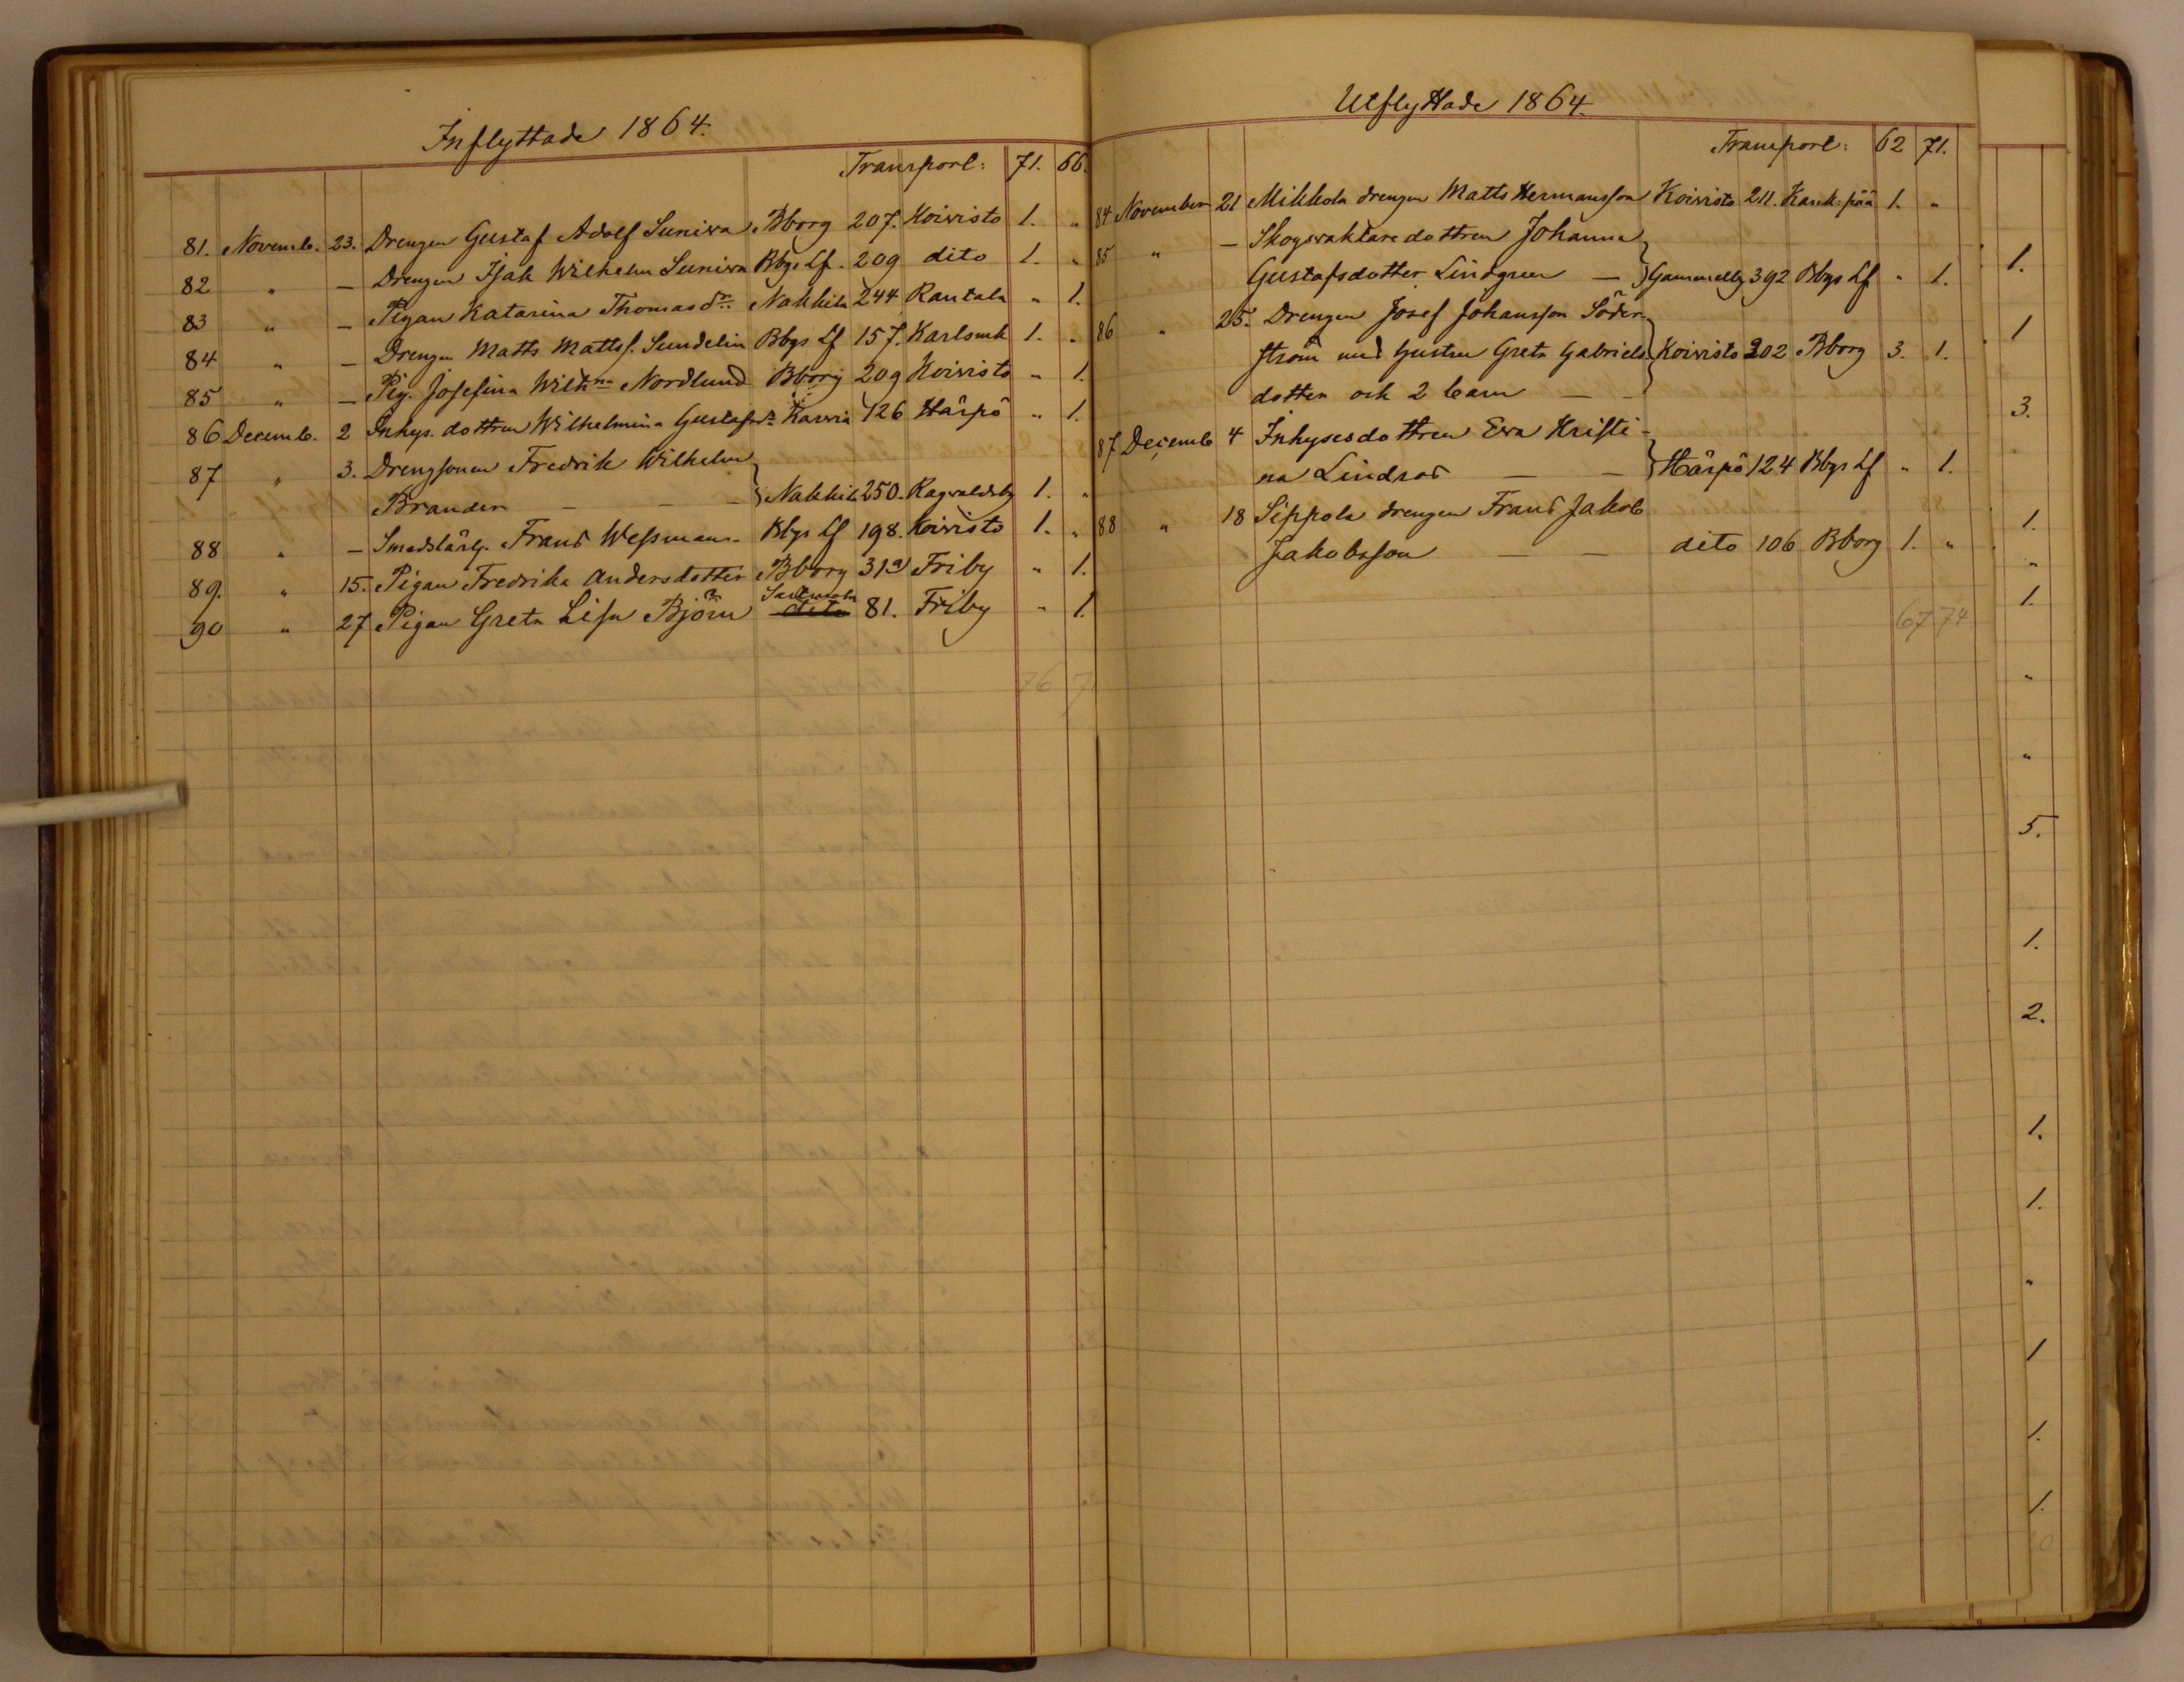 Inflyttade 1864.
Transport: 71. 66.
81. Novemb. 23. Drengen Gustaf Adolf Suniwa Bborg 207. Koivisto 1. "
82 " — Drengen Isak Wilhelm Suniwa Bbgs Lf. 209 dito 1. "
83 " — Pigan Katarina Thomasdr. Nakkila 244 Rautala " 1.
84 " — Drengen Matts Mattss. Sundelin Bbgs Lf 157. Karlsmk 1. "
85 " — Pig. Josefina Wilhna Nordlund Bborg 209 Koivisto " 1.
86 Decemb. 2 Inhys. dottren Wilhelmina Gustafsdr Karvia 126 Härpö " 1.
87 " 3. Drengsonen Fredrik Wilhelm
Brander — — — Nakkila 250. Ragvaldsby 1. "
88 " — Smedslärl. Frans Wessman Bbgs Lf 198. Koivisto 1. "
89. " 15. Pigan Fredrika Andersdotter Bborg 31 Friby " 1.
90 " 27 Pigan Greta Lisa Björn dito 81. Friby " 1.
76 7
Utflyttade 1864.
Transport: 62 71.
84 November 21 Mikkola drengen Matts Hermansson Koivisto 211. Kank:pää 1. "
85 " — Skogsvaktare dottren Johanna
Gustafsdotter Lindgren — Gammelby 392 Bbgs Lf " 1.
86 " 25. Drengen Josef Johansson Söder-
ström med hustru Greta Gabriels- Koivisto 202 Bborg 3. 1.
dotter och 2 barn — —
87 Decemb 4 Inhysesdottren Eva Kristi-
na Lindroos — — Härpö 124 Bbgs Lf " 1.
88 " 18 Sippola drengen Frans Jakob
Jakobsson — — dito 106 Bborg 1. "
67 74
1.
1
3.
1.
"
1.
"
"
5.
1.
2.
1.
1.
"
1
1.
1.